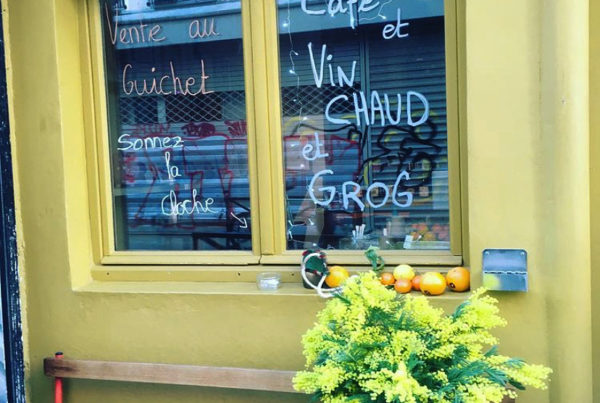 Vente au
Guichet
Sonnez
la
cloche
Café
et
Vin
CHAUD
et
GROG